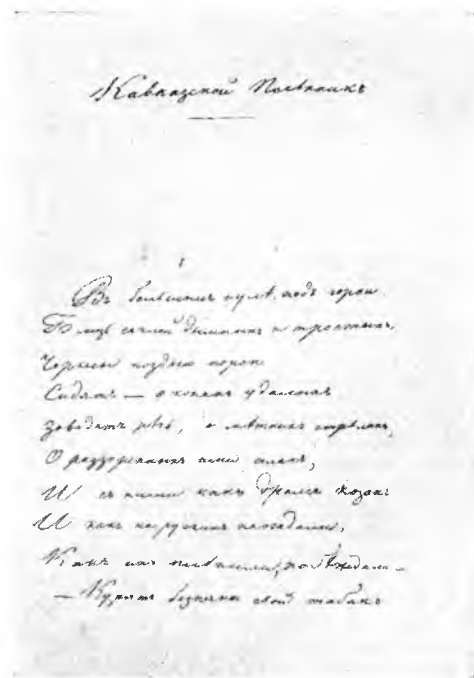 Кавказской Плѣнникъ
I
Въ большомъ аулѣ, подъ горою
Близь саклей дымныхъ и простыхъ,
Черкесы позднею порою
Сидятъ — о коняхъ удалыхъ
Заводятъ рѣчь, о мѣткихъ стрѣлахъ,
О раззоренныхъ ими селахъ;
И съ ними какъ дрался козакъ
И какъ на русскихъ нападали,
Какъ ихъ плѣнили, побѣждали —
— Курятъ безпечно свой табакъ